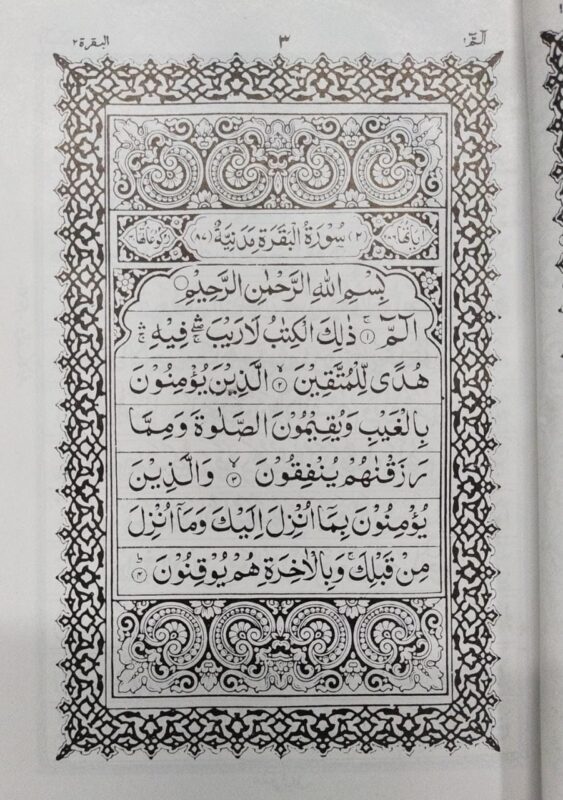 الٓمّٓ ١ ٣ البقرة ٢
اٰیاتها (٢) سُوْرَةُ الْبَقَرَةِ مَدَنِيَّةٌ (٨٧) رکوعاتها
بِسْمِ اللّٰهِ الرَّحْمٰنِ الرَّحِيْمِ
الٓمّٓ ۚ‏﴿١﴾ ذٰلِكَ الْكِتٰبُ لَا رَيْبَ ۛۖۚ فِيْهِ ۛۚ
هُدًى لِّلْمُتَّقِيْنَ ۙ‏﴿٢﴾ الَّذِيْنَ يُؤْمِنُوْنَ
بِالْغَيْبِ وَيُقِيْمُوْنَ الصَّلٰوةَ وَمِمَّا
رَزَقْنٰهُمْ يُنْفِقُوْنَ ۙ‏﴿٣﴾ وَالَّذِيْنَ
يُؤْمِنُوْنَ بِمَآ اُنْزِلَ اِلَيْكَ وَمَآ اُنْزِلَ
مِنْ قَبْلِكَ ۚ وَبِالْاٰخِرَةِ هُمْ يُوْقِنُوْنَ ؕ‏﴿٤﴾